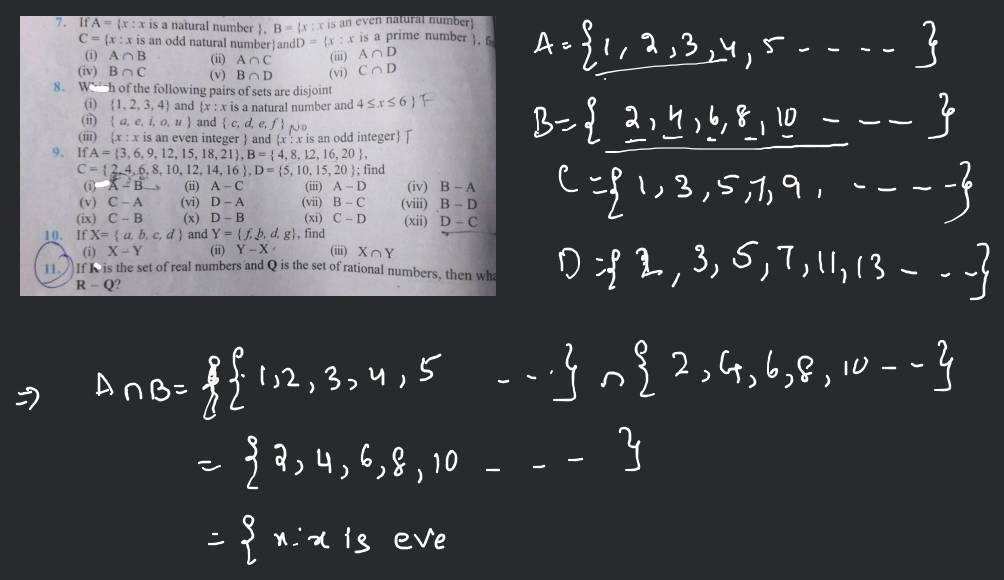 7. If A = {x : x is a natural number }, B = {x : x is an even natural number}
C = {x : x is an odd natural number} and D = {x : x is a prime number },
(i) A ∩ B (ii) A ∩ C (iii) A ∩ D
(iv) B ∩ C (v) B ∩ D (vi) C ∩ D
8. of the following pairs of sets are disjoint
(i) {1, 2, 3, 4} and {x : x is a natural number and 4 ≤ x ≤ 6 } F
(ii) { a, e, i, o, u } and { c, d, e, f } No
(iii) {x : x is an even integer } and {x : x is an odd integer} T
9. If A = {3, 6, 9, 12, 15, 18, 21}, B = { 4, 8, 12, 16, 20 },
C = { 2, 4, 6, 8, 10, 12, 14, 16 }, D = {5, 10, 15, 20 }; find
(i) A – B (ii) A – C (iii) A – D (iv) B – A
(v) C – A (vi) D – A (vii) B – C (viii) B – D
(ix) C – B (x) D – B (xi) C – D (xii) D – C
10. If X= { a, b, c, d } and Y = { f, b, d, g}, find
(i) X – Y (ii) Y – X (iii) X ∩ Y
11. If R is the set of real numbers and Q is the set of rational numbers, then
R – Q?
A = {1, 2, 3, 4, 5 - - - - }
B = { 2, 4, 6, 8, 10 - - - - }
C = { 1, 3, 5, 7, 9, - - - - }
D = { 2, 3, 5, 7, 11, 13 - - - }
⇒ A ∩ B = { 1, 2, 3, 4, 5 - - - } ∩ { 2, 4, 6, 8, 10 - - }
= { 2, 4, 6, 8, 10 - - - }
= { x : x is eve